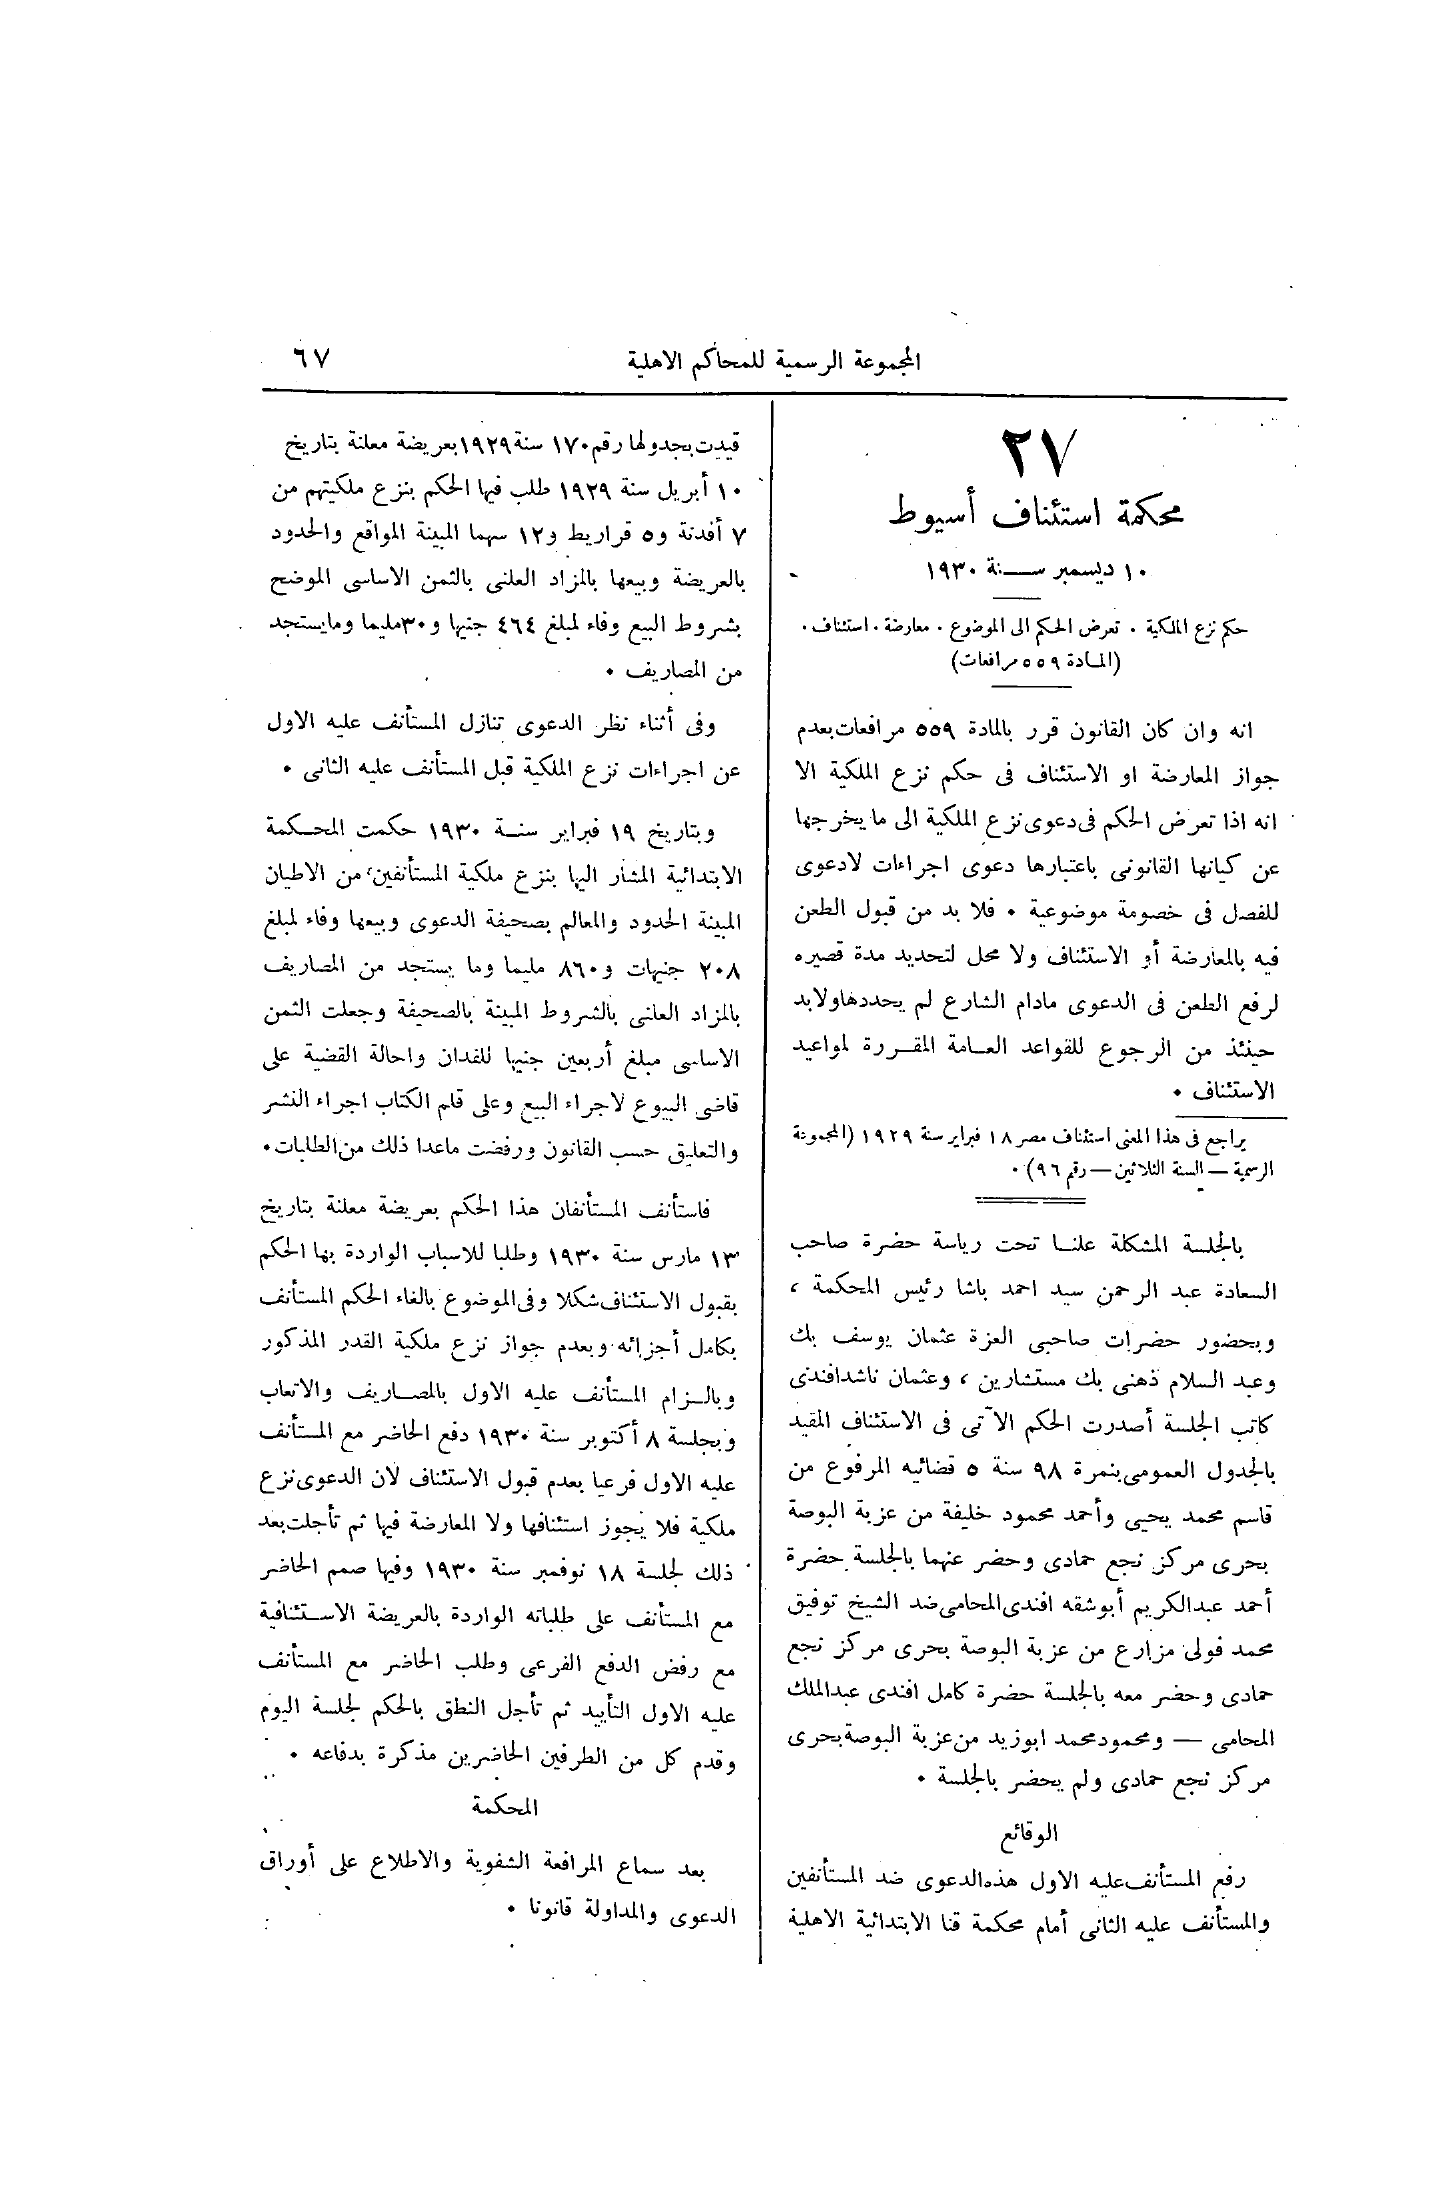 المجموعة الرسمية للمحاكم الاهلية ٦٧
٢٧
محكمة استئناف أسيوط
١٠ ديسمبر سنة ١٩٣٠
حكم نزع الملكية . تعرض الحكم الى الموضوع . معارضة . استئناف .
(المادة ٥٥٩ مرافعات)
انه وان كان القانون قرر بالمادة ٥٥٩ مرافعات بعدم
جواز المعارضة او الاستئناف فى حكم نزع الملكية الا
انه اذا تعرض الحكم فى دعوى نزع الملكية الى ما يخرجها
عن كيانها القانونى باعتبارها دعوى اجراءات لا دعوى
للفصل فى خصومة موضوعية . فلا بد من قبول الطعن
فيه بالمعارضة أو الاستئناف ولا محل لتحديد مدة قصيره
لرفع الطعن فى الدعوى مادام الشارع لم يحددها ولابد
حينئذ من الرجوع للقواعد العامة المقررة لمواعيد
الاستئناف .
يراجع فى هذا المعنى استئناف مصر ١٨ فبراير سنة ١٩٢٩ (المجموعة
الرسمية — السنة الثلاثين — رقم ٩٦) .
بالجلسة المشكلة علنا تحت رياسة حضرة صاحب
السعادة عبد الرحمن سيد احمد باشا رئيس المحكمة ،
وبحضور حضرات صاحبى العزة عثمان يوسف بك
وعبد السلام ذهنى بك مستشارين ، وعثمان ناشد افندى
كاتب الجلسة أصدرت الحكم الآتى فى الاستئناف المقيد
بالجدول العمومى بنمرة ٩٨ سنة ٥ قضائيه المرفوع من
قاسم محمد يحيى وأحمد محمود خليفة من عزبة البوصة
بحرى مركز نجع حمادى وحضر عنهما بالجلسة حضرة
أحمد عبد الكريم أبوشقه افندى المحامى ضد الشيخ توفيق
محمد فولى مزارع من عزبة البوصة بحرى مركز نجع
حمادى وحضر معه بالجلسة حضرة كامل افندى عبد الملك
المحامى — ومحمود محمد ابوزيد من عزبة البوصة بحرى
مركز نجع حمادى ولم يحضر بالجلسة .
الوقائع
رفع المستأنف عليه الاول هذه الدعوى ضد المستأنفين
والمستأنف عليه الثانى أمام محكمة قنا الابتدائية الاهلية
قيدت بجدولها رقم ١٧٠ سنة ١٩٢٩ بعريضة معلنة بتاريخ
١٠ أبريل سنة ١٩٢٩ طلب فيها الحكم بنزع ملكيتهم من
٧ أفدنة و٥ قراريط و١٢ سهما المبينة المواقع والحدود
بالعريضة وبيعها بالمزاد العلنى بالثمن الاساسى الموضح
بشروط البيع وفاء لمبلغ ٤٦٤ جنيها و٣٠ مليما وما يستجد
من المصاريف .
وفى أثناء نظر الدعوى تنازل المستأنف عليه الاول
عن اجراءات نزع الملكية قبل المستأنف عليه الثانى .
وبتاريخ ١٩ فبراير سنة ١٩٣٠ حكمت المحكمة
الابتدائية المشار اليها بنزع ملكية المستأنفين من الاطيان
المبينة الحدود والمعالم بصحيفة الدعوى وبيعها وفاء لمبلغ
٢٠٨ جنيهات و٨٦٠ مليما وما يستجد من المصاريف
بالمزاد العلنى بالشروط المبينة بالصحيفة وجعلت الثمن
الاساسى مبلغ أربعين جنيها للفدان واحالة القضية على
قاضى البيوع لاجراء البيع وعلى قلم الكتاب اجراء النشر
والتعليق حسب القانون ورفضت ماعدا ذلك من الطلبات .
فاستأنف المستأنفان هذا الحكم بعريضة معلنة بتاريخ
١٣ مارس سنة ١٩٣٠ وطلبا للاسباب الواردة بها الحكم
بقبول الاستئناف شكلا وفى الموضوع بالغاء الحكم المستأنف
بكامل أجزائه وبعدم جواز نزع ملكية القدر المذكور
وبالزام المستأنف عليه الاول بالمصاريف والاتعاب
وبجلسة ٨ أكتوبر سنة ١٩٣٠ دفع الحاضر مع المستأنف
عليه الاول فرعيا بعدم قبول الاستئناف لان الدعوى نزع
ملكية فلا يجوز استئنافها ولا المعارضة فيها ثم تأجلت بعد
ذلك لجلسة ١٨ نوفمبر سنة ١٩٣٠ وفيها صمم الحاضر
مع المستأنف على طلباته الواردة بالعريضة الاستئنافية
مع رفض الدفع الفرعى وطلب الحاضر مع المستأنف
عليه الاول التأييد ثم تأجل النطق بالحكم لجلسة اليوم
وقدم كل من الطرفين الحاضرين مذكرة بدفاعه .
المحكمة
بعد سماع المرافعة الشفوية والاطلاع على أوراق
الدعوى والمداولة قانونا .